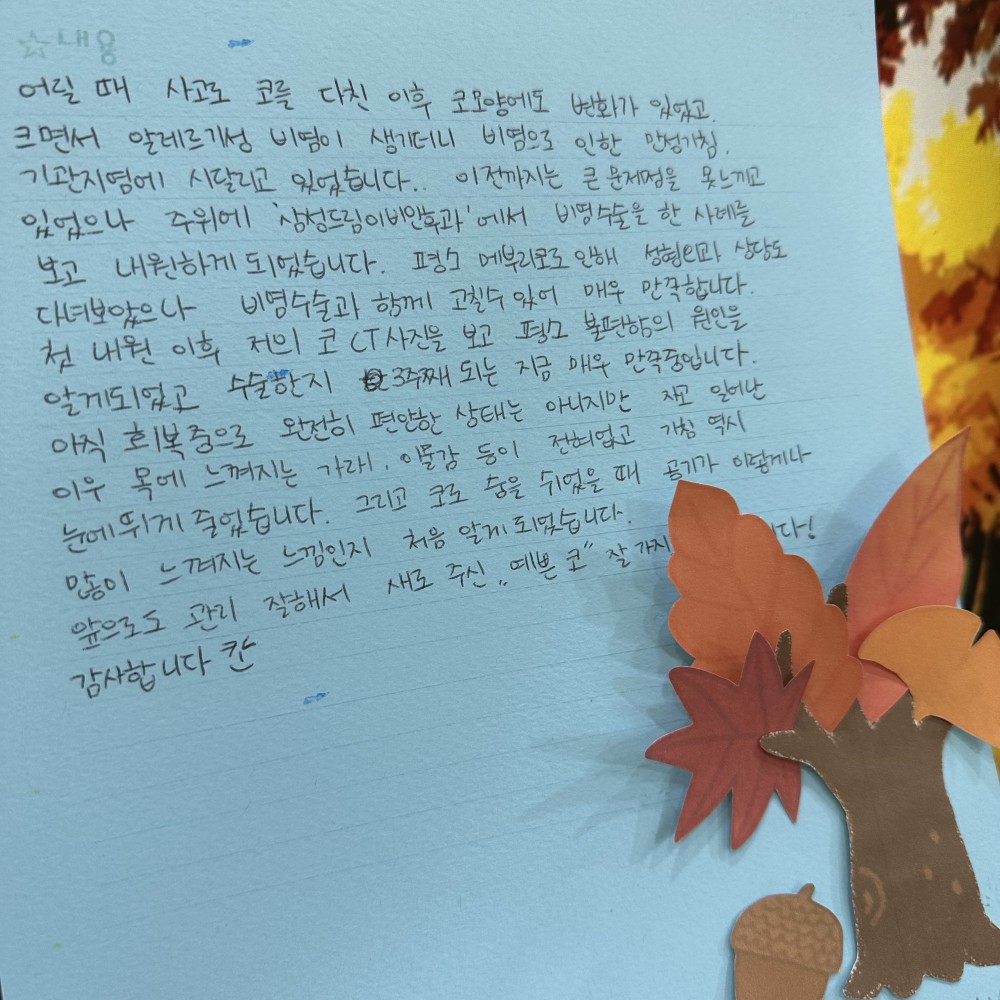 ☆내용
어릴 때 사고로 코를 다친 이후 코모양에도 변화가 있었고.
크면서 알레르기성 비염이 생기더니 비염으로 인한 만성기침,
기관지염에 시달리고 있었습니다.. 이전까지는 큰 문제점을 못느끼고
있었으나 주위에 '삼성드림이비안후과'에서 비염수술을 한 사례를
보고 내원하게 되었습니다. 평소 메부리코로 인해 성형외과 상담도
다녀보았으나 비염수술과 함께 고칠수 있어 매우 만족합니다.
첫 내원 이후 저의 코 CT사진을 보고 평소 불편함의 원인을
알게되었고 수술한지 3주째 되는 지금 매우 만족중입니다.
아직 회복중으로 완전히 편안한 상태는 아니지만 자고 일어난
이우 목에 느껴지는 가래, 이물감 등이 전혀없고 기침 역시
눈에 뛰게 줄었습니다. 그리고 코로 숨을 쉬었을 때 공기가 이렇게나
많이 느껴지는 느낌인지 처음 알게 되었습니다.
앞으로도 관리 잘해서 새로 주신 "예쁜 코" 잘 가지 니다!
감사합니다